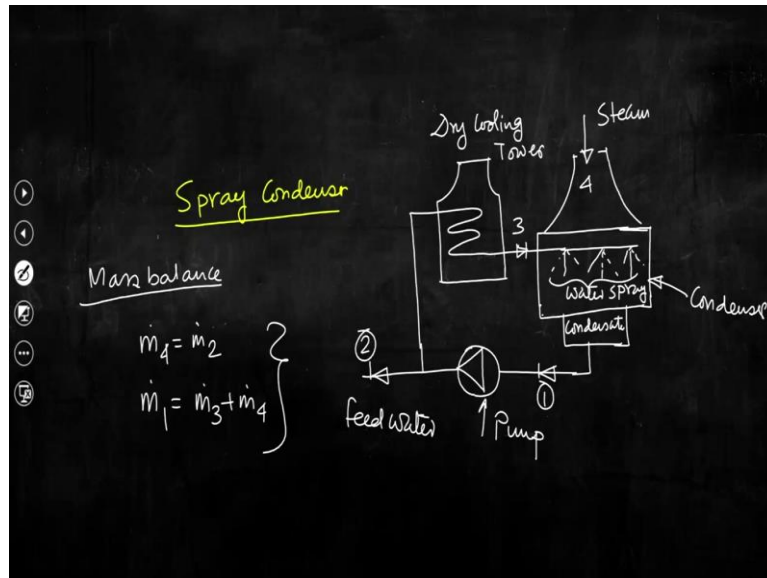 Spray Condensr
Mass balance
ṁ4 = ṁ2
ṁ1 = ṁ3 + ṁ4
Dry Cooling
Tower
Steam
4
3
water spray
Condenser
Condensate
2
1
feed water
Pump